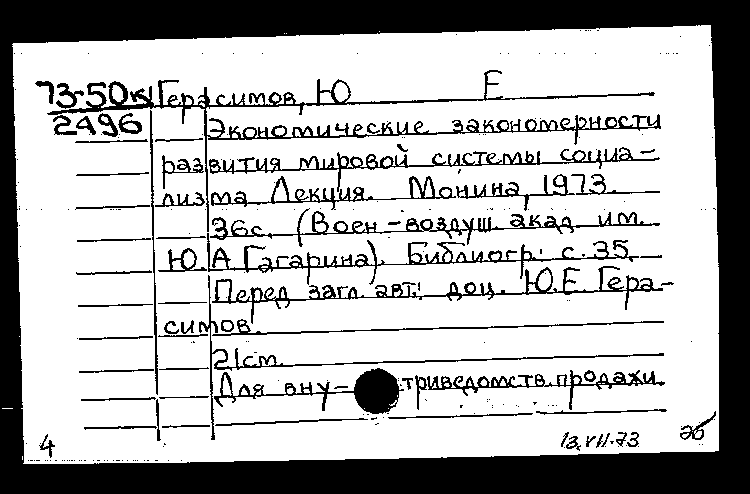 73-50к Герасимов, Ю Е
2496
Экономические закономерности
развития мировой системы социа-
лизма Лекция. Монина, 1973.
36с. (Воен-воздуш. акад им.
Ю.А Гагарина). Библиогр: с. 35.
Перед загл. авт: доц. Ю.Е. Гера-
симов.
21см.
Для вну- триведомств. продажи.
4 13.VII.73